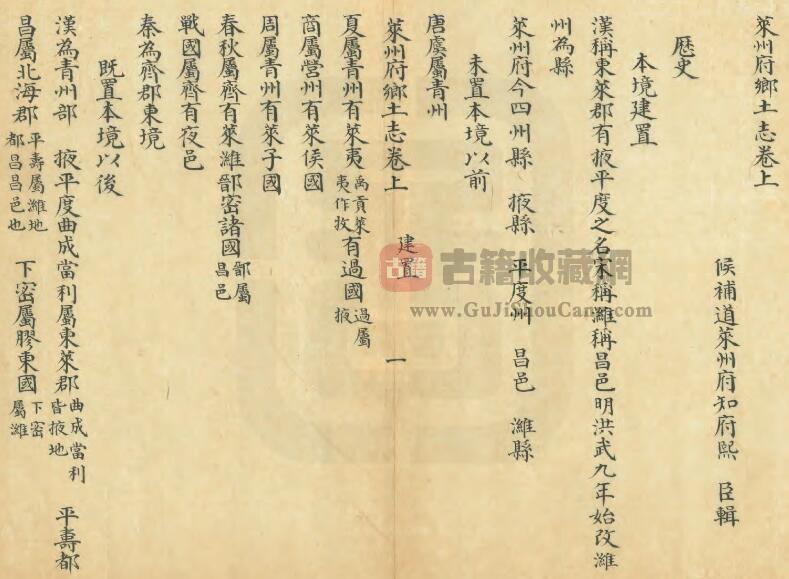 萊州府鄉土志卷上
候補道萊州府知府熙 臣輯
歷史
本境建置
漢稱東萊郡有掖平度之名宋稱濰稱昌邑明洪武九年始改濰
州為縣
萊州府今四州縣 掖縣 平度州 昌邑 濰縣
未置本境以前
唐虞屬青州
萊州府鄉土志卷上 建置 一
夏屬青州有萊夷禹貢萊夷作牧有過國過屬掖
商屬營州有萊侯國
周屬青州有萊子國
春秋屬齊有萊濰鄑密諸國鄑屬昌邑
戰國屬齊有夜邑
秦為齊郡東境
既置本境以後
漢為青州部 掖平度曲成當利屬東萊郡曲成當利皆掖地 平壽都
昌屬北海郡平壽屬濰地都昌昌邑也 下密屬膠東國下密屬濰
古籍
古籍收藏網
www.GuJiShouCang.com